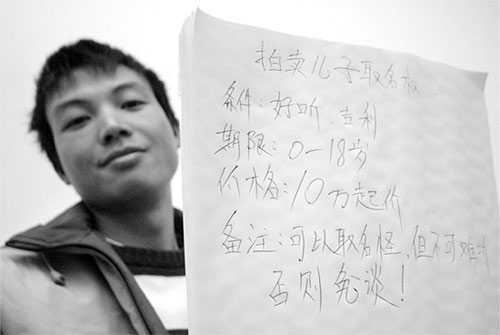 拍卖儿子取名权
条件:好听 吉利
期限:0—18岁
价格:10万起价
备注:可以取名怪,但不可难听
否则免谈!